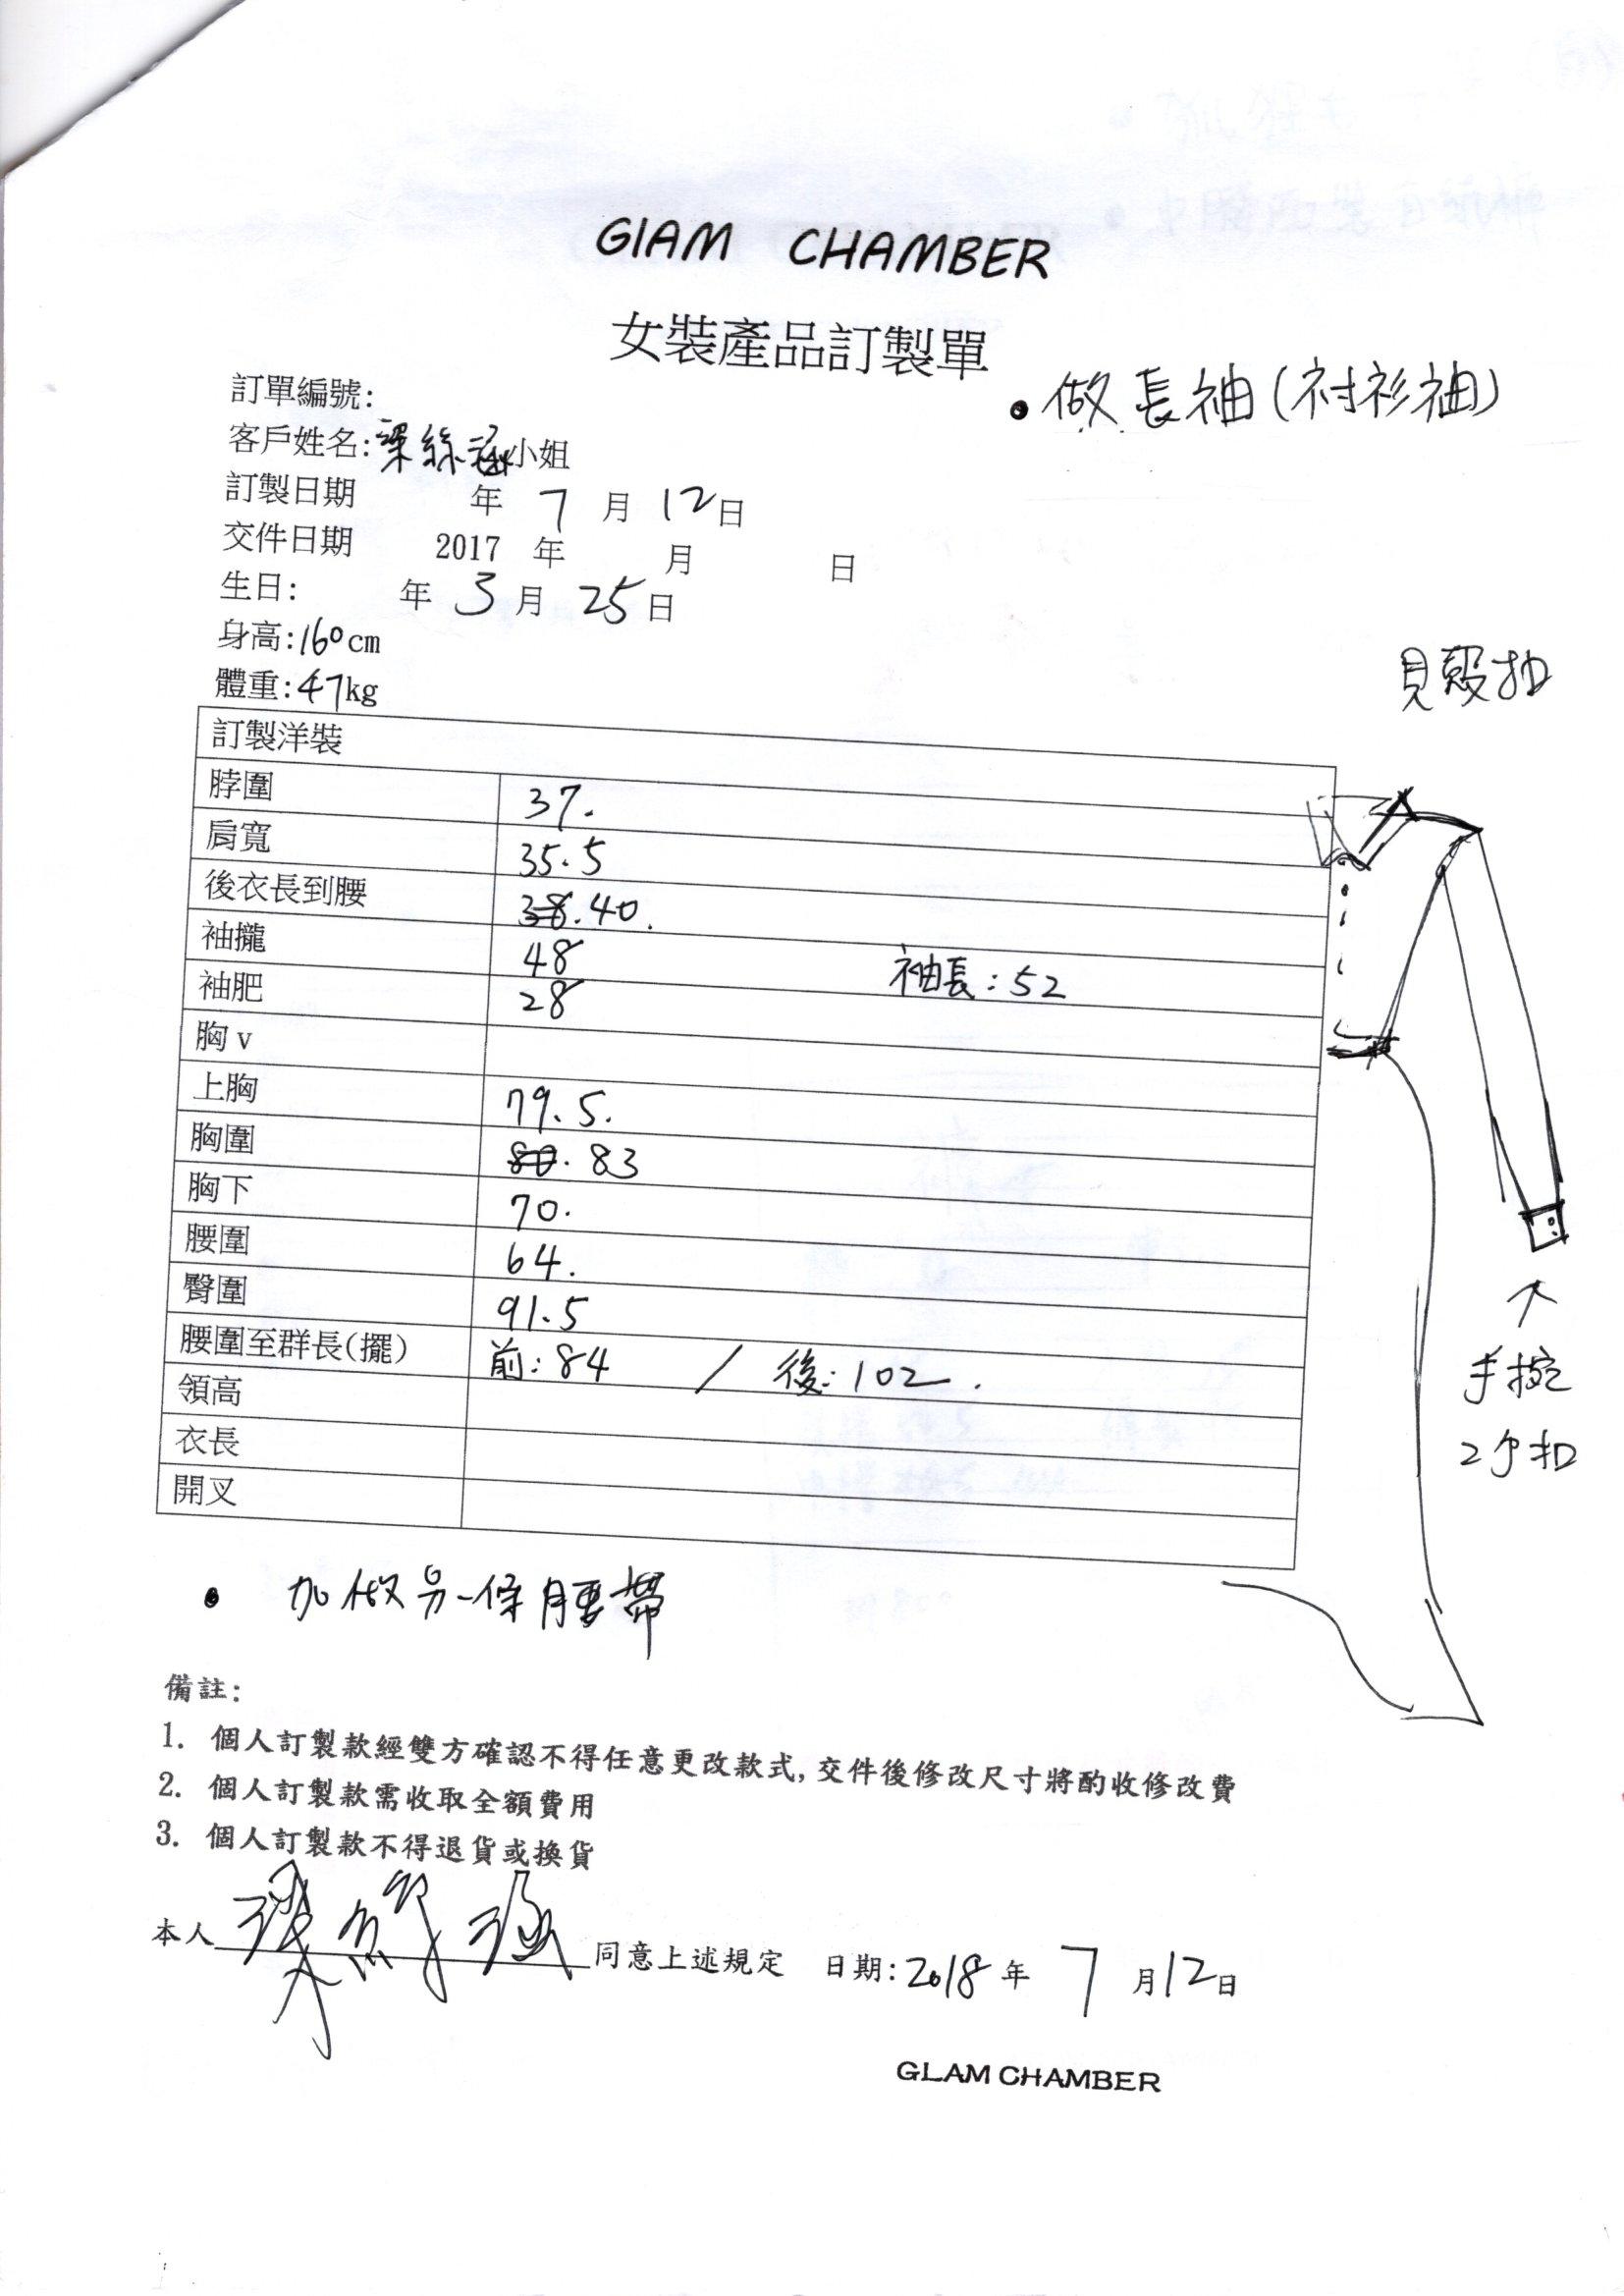 GIAM CHAMBER
女裝產品訂製單
• 做長袖(衬衫袖)
訂單編號:
客戶姓名:梁絲涵小姐
訂製日期 年 7 月 12日
交件日期 2017 年 月 日
生日: 年 3 月 25日
身高:160cm
體重:47kg
貝殼扣
訂製洋裝
脖圍 37.
肩寬 35.5
後衣長到腰 38. 40.
袖攏 48 袖長:52
袖肥 28
胸v
上胸 79.5.
胸圍 80. 83
胸下 70.
腰圍 64.
臀圍 91.5
腰圍至群長(擺) 前:84 / 後:102.
領高
衣長
開叉
手捥
2个扣
• 加做另一條腰帶
備註:
1. 個人訂製款經雙方確認不得任意更改款式,交件後修改尺寸將酌收修改費
2. 個人訂製款需收取全額費用
3. 個人訂製款不得退貨或換貨
本人 梁絲涵 同意上述規定 日期:2018年 7 月12日
GLAM CHAMBER